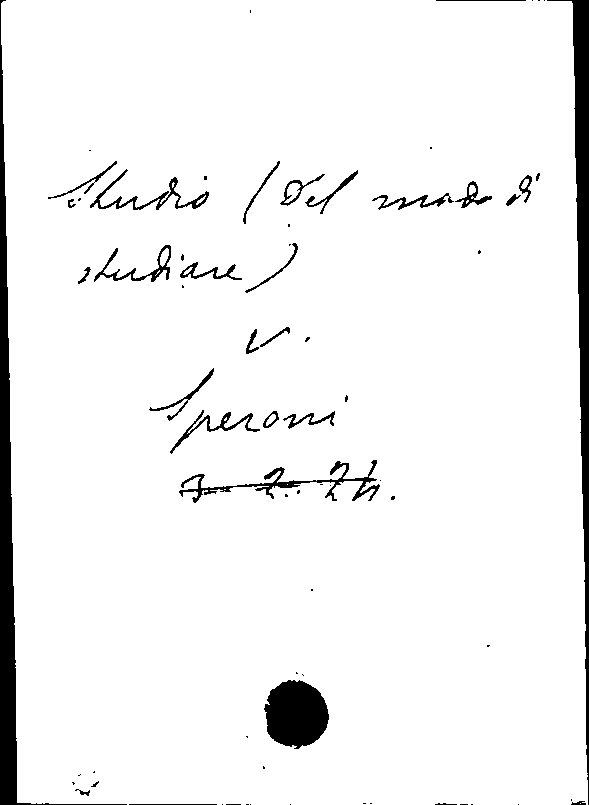 Studio (Del modo di
studiare)
v.
Speroni
3. 2. 24.